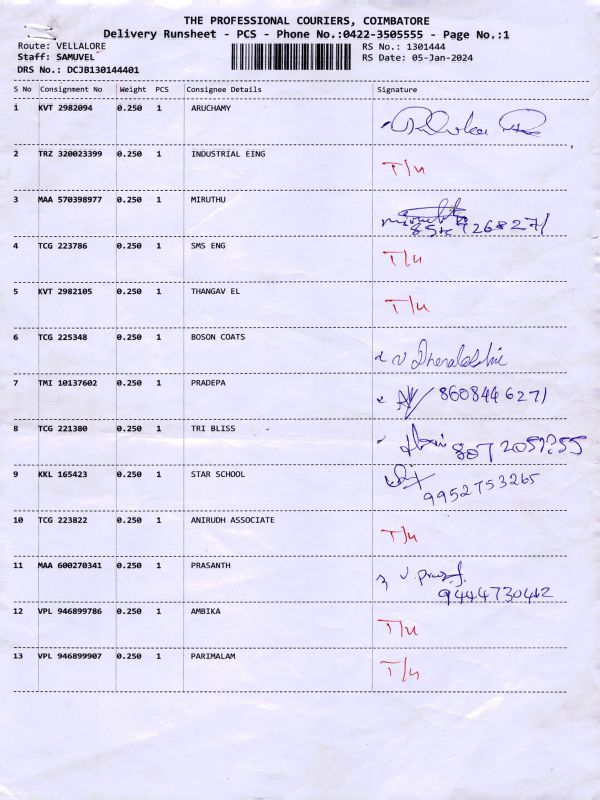 THE PROFESSIONAL COURIERS, COIMBATORE
Delivery Runsheet - PCS - Phone No.:0422-3505555 - Page No.:1
Route: VELLALORE RS No.: 1301444
Staff: SAMUVEL RS Date: 05-Jan-2024
DRS No.: DCJB130144401
S No Consignment No Weight PCS Consignee Details Signature
1 KVT 2982094 0.250 1 ARUCHAMY
2 TRZ 320023399 0.250 1 INDUSTRIAL EING T/u
3 MAA 570398977 0.250 1 MIRUTHU
4 TCG 223786 0.250 1 SMS ENG T/u
5 KVT 2982105 0.250 1 THANGAV EL T/u
6 TCG 225348 0.250 1 BOSON COATS
7 TMI 10137602 0.250 1 PRADEPA 8608446271
8 TCG 221380 0.250 1 TRI BLISS
9 KKL 165423 0.250 1 STAR SCHOOL
9952753265
10 TCG 223822 0.250 1 ANIRUDH ASSOCIATE T/u
11 MAA 600270341 0.250 1 PRASANTH
9444730462
12 VPL 946899786 0.250 1 AMBIKA T/u
13 VPL 946899907 0.250 1 PARIMALAM T/u